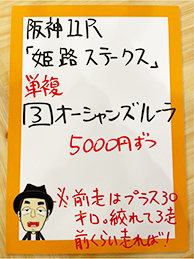 阪神11R
「姫路ステークス」
単複
3オーシャンズルーラ
5000円ずつ
※前走はプラス30
キロ。絞れて3走
前くらい走れば!